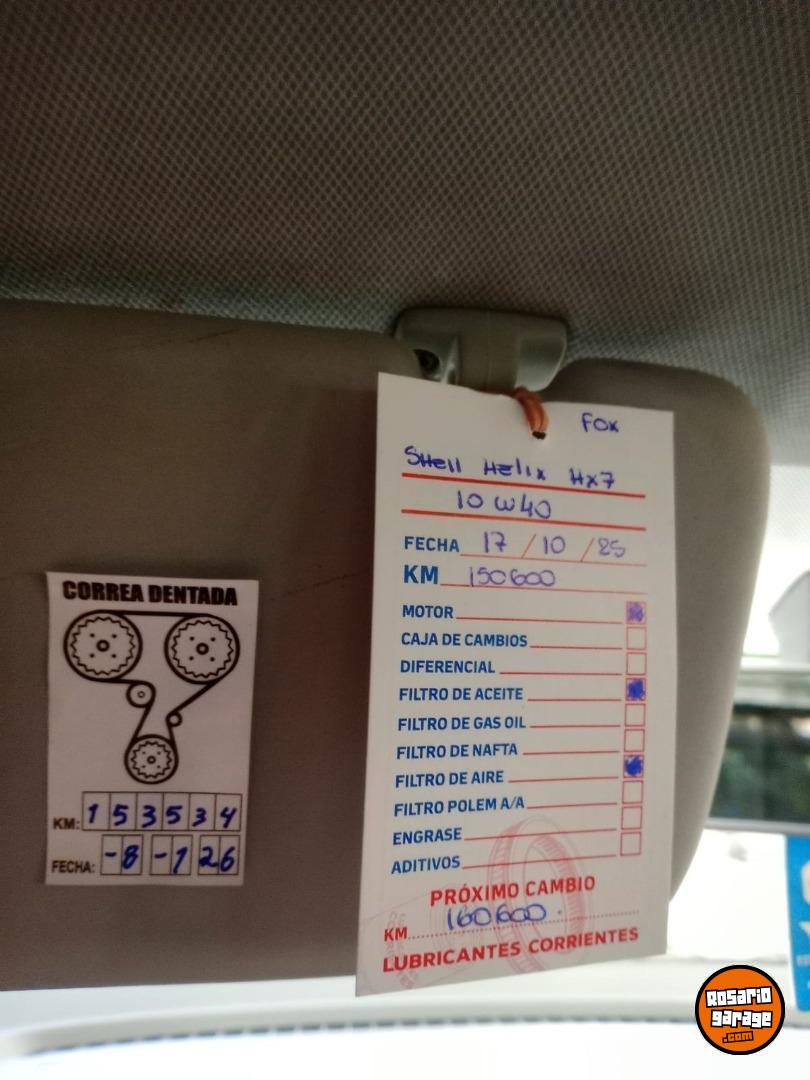 FOX
SHell Helix Hx7
10 W40
FECHA 17 / 10 / 25
KM 150600
MOTOR
CAJA DE CAMBIOS
DIFERENCIAL
FILTRO DE ACEITE
FILTRO DE GAS OIL
FILTRO DE NAFTA
FILTRO DE AIRE
FILTRO POLEM A/A
ENGRASE
ADITIVOS
PRÓXIMO CAMBIO
KM 160600
LUBRICANTES CORRIENTES
CORREA DENTADA
KM: 153534
FECHA: -8 -1 26
Rosario
garage
.com